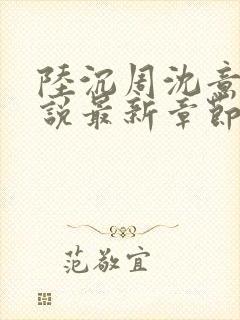 陸沉周沈意
說最新章節
范敬宜